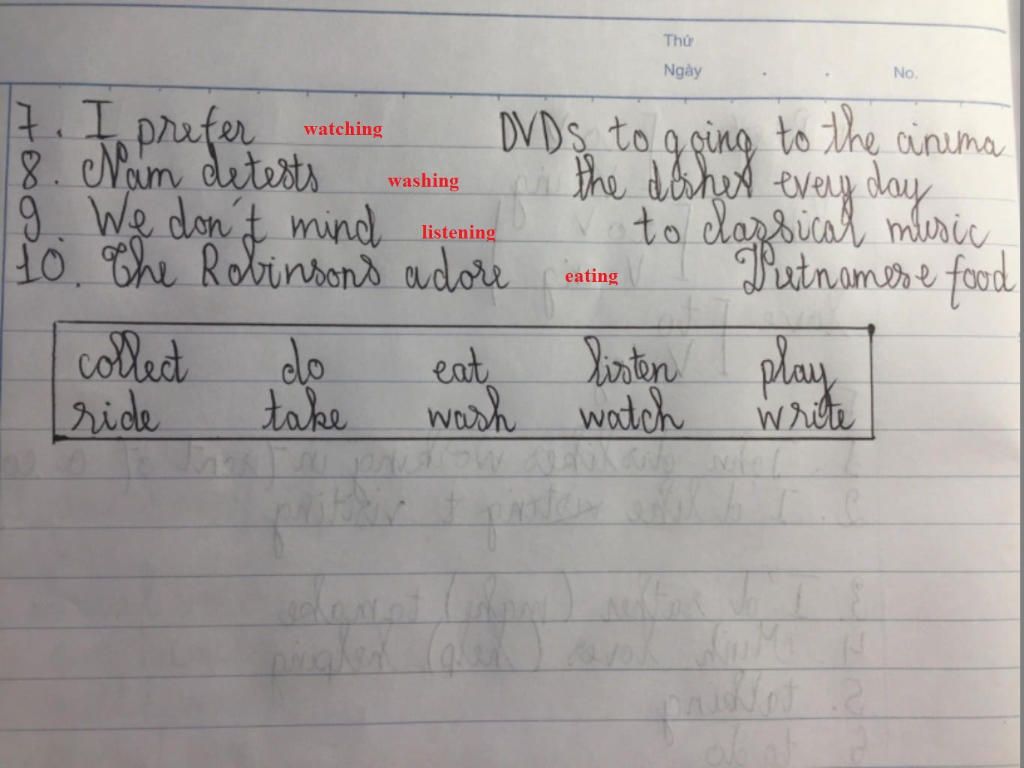 Thứ
Ngày . . No.
7. I prefer watching DVDs to going to the cinema
8. Nam detests washing the dishes every day
9. We don't mind listening to classical music
10. The Robinsons adore eating Vietnamese food
collect do eat listen play
ride take wash watch write